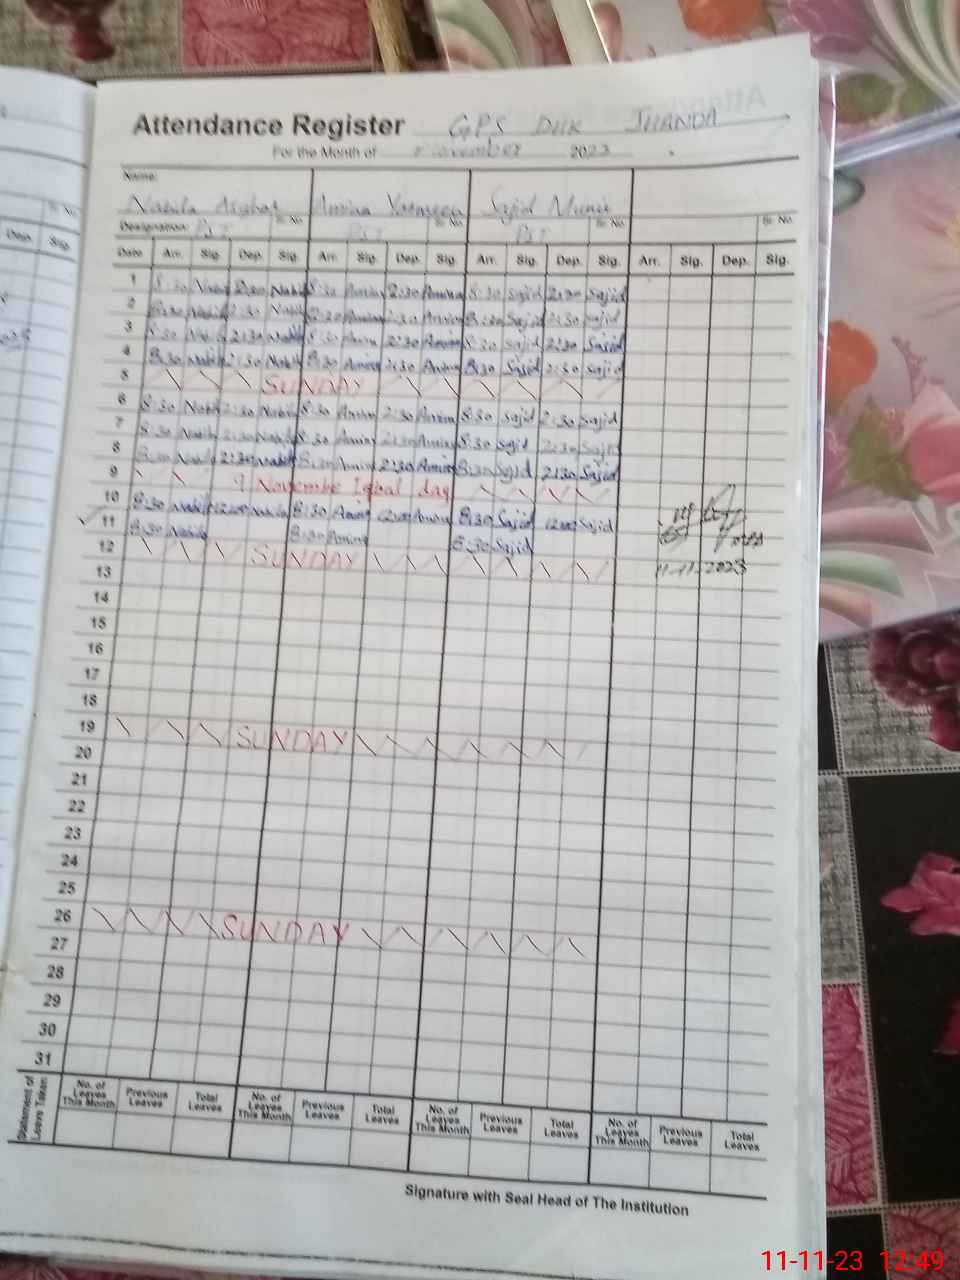 Attendance Register GPS DHK JHANDA
For the Month of November 2023
Name:
Nabila Asghar Amina Yasmeen Sajid Munir
Designation: PST Sr. No. PST Sr. No. PST Sr. No. Sr. No.
Date Arr. Sig. Dep. Sig. Arr. Sig. Dep. Sig. Arr. Sig. Dep. Sig. Arr. Sig. Dep. Sig.
1 8:30 Nabila 2:30 Nabila 8:30 Amina 2:30 Amina 8:30 Sajid 2:30 Sajid
2 8:30 Nabila 2:30 Nabila 8:30 Amina 2:30 Amina 8:30 Sajid 2:30 Sajid
3 8:30 Nabila 2:30 Nabila 8:30 Amina 2:30 Amina 8:30 Sajid 2:30 Sajid
4 8:30 Nabila 2:30 Nabila 8:30 Amina 2:30 Amina 8:30 Sajid 2:30 Sajid
5 SUNDAY
6 8:30 Nabila 2:30 Nabila 8:30 Amina 2:30 Amina 8:30 Sajid 2:30 Sajid
7 8:30 Nabila 2:30 Nabila 8:30 Amina 2:30 Amina 8:30 Sajid 2:30 Sajid
8 8:30 Nabila 2:30 Nabila 8:30 Amina 2:30 Amina 8:30 Sajid 2:30 Sajid
9 9 Novembe Iqbal day
10 8:30 Nabila 12:00 Nabila 8:30 Amina 12:00 Amina 8:30 Sajid 12:00 Sajid
11 8:30 Nabila 8:30 Amina 8:30 Sajid
12 SUNDAY
13 11-11-2023
14
15
16
17
18
19 SUNDAY
20
21
22
23
24
25
26 SUNDAY
27
28
29
30
31
Statement of Leave Taken
No. of Leaves This Month Previous Leaves Total Leaves No. of Leaves This Month Previous Leaves Total Leaves No. of Leaves This Month Previous Leaves Total Leaves No. of Leaves This Month Previous Leaves Total Leaves
Signature with Seal Head of The Institution
Sr. No.
Dep. Sig.
11-11-23 12:49